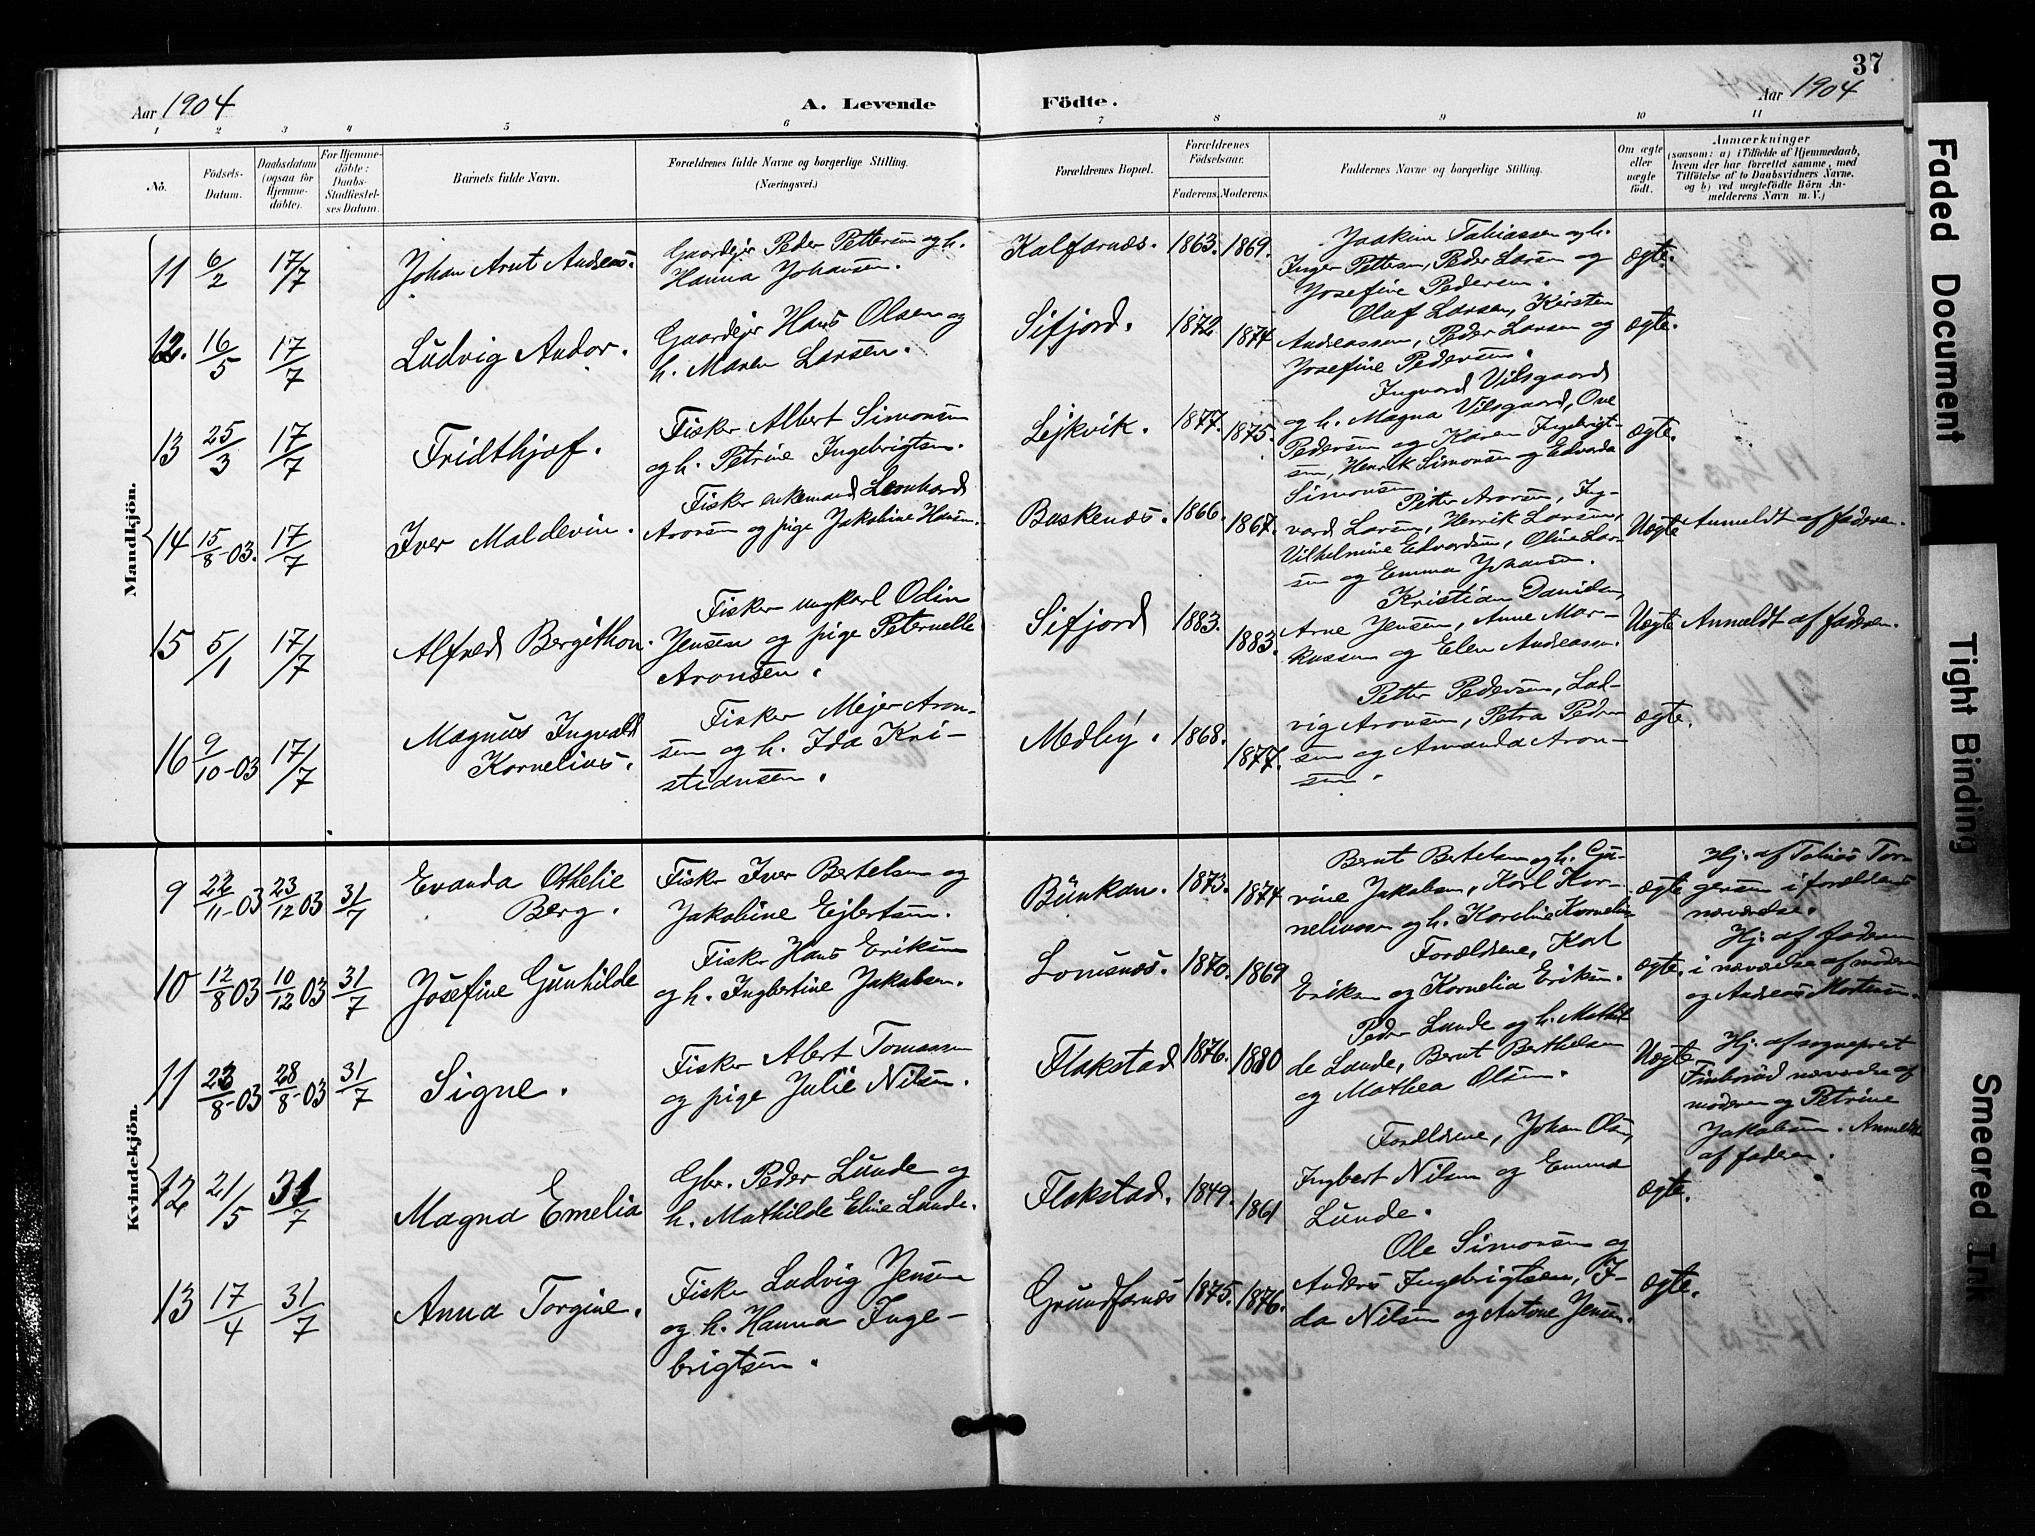 37
Aar 1904
A. Levende
Födte.
Aar 1904
1 2 3 4 5 6 7 8 9 10 11
No.
Födsels-
Datum.
Daabsdatum
(ogsaa for
Hjemme-
döbte).
For Hjemme-
döbte:
Daabs-
Stadfæstel-
ses Datum.
Barnets fulde Navn.
Forældrenes fulde Navne og borgerlige Stilling.
(Næringsvei.)
Forældrenes Bopæl.
Forældrenes
Födselsaar.
Faderens. Moderens.
Faddernes Navne og borgerlige Stilling.
Om ægte
eller
uægte
födt.
Anmærkninger
(saasom: a) i Tilfælde af Hjemmedaab,
hvem der har forrettet samme, med
Tilföielse af to Daabsvidners Navne,
og b) ved uægtefödte Börn An-
melderens Navn m. V.)
Mandkjön.
11 6/2 17/7
Johan Arnt Andreas.
Gaardejer Peder Pettersen og h.
Hanna Johansen.
Kalfarnæs. 1863. 1869.
Joakim Tobiassen og h.
Inger Pettersen, Peder Larsen og
Josefine Pedersen.
ægte.
12. 16/5 17/7
Ludvig Andor.
Gaardejer Hans Olsen og
h. Maren Larsen.
Sifjord. 1872 1874
Olaf Larsen, Kirsten
Andreassen, Peder Larsen og
Josefine Pedersen.
ægte.
13 25/3 17/7
Fridthjof.
Fisker Albert Simonsen
og h. Petrine Ingebrigtsen.
Lejkvik. 1877. 1875.
Ingvard Vilsgaard
og h. Magna Vilsgaard, Ove
Pedersen og Karen Ingebrigt-
sen, Henrik Simonsen og Edvarda
Simonsen
ægte.
14 15/8-03. 17/7
Iver Maldevin.
Fisker enkemand Leonhard
Aronsen og pige Jakobine Hansen.
Baskenæs. 1866. 1867.
Petter Aronsen, Ing-
vard Larsen, Henrik Larsen,
Vilhelmine Edvardsen, Oline Lar-
sen og Emma Johansen.
Uægte Anmeldt af faderen.
15 5/1 17/7
Alfred Bergithon.
Fisker ungkarl Odin
Jensen og pige Peternelle
Aronsen.
Sifjord 1883. 1883.
Kristian Danielsen,
Arne Jensen, Anne Mar-
kussen og Elen Andreassen.
Uægte Anmeldt af faderen.
16 9/10-03 17/7
Magnus Ingvald
Kornelius.
Fisker Mejer Aron-
sen og h. Ida Kri-
stiansen.
Medby. 1868. 1877.
Petter Pedersen, Lud-
vig Aronsen, Petra Peder
sen og Amanda Aron-
sen.
ægte.
Kvindekjön.
9 22/11-03 23/12 03 31/7
Evanda Othelie
Berg.
Fisker Iver Bertelsen og
Jakobine Ejlertsen.
Bunkan. 1873. 1874
Bernt Bertelsen og h. Gu-
rine Jakobsen, Karl Kor-
neliussen og h. Karoline Kornelius
ægte
Hj. af Tobias Tor-
gersen i forældrenes
nærværelse.
10 12/8 03 10/12 03 31/7
Josefine Gunhilde
Fisker Hans Eriksen
og h. Ingbertine Jakobsen.
Lomsnæs. 1870. 1869
Forældrene, Karl
Eriksen og Kornelia Eriksen.
ægte.
Hj. af faderen
i nærværelse af moderen
og Andreas Mortensen.
11 23/8-03 28/8-03 31/7
Signe.
Fisker Albert Tomassen
og pige Julie Nilsen.
Flakstad 1876. 1880
Peder Lunde og h. Mathil
de Lunde, Bernt Berthelsen
og Mathea Olsen.
Uægte
Hj. af sogneprest
nærværelse af
moderen og Petrine
Jakobsen. Anmeldt
af faderen.
12 21/5 31/7
Magna Emelia
Gbr. Peder Lunde og
h. Mathilde Eline Lunde.
Flakstad. 1849. 1861
Forældrene, Johan Olsen,
Ingbert Nilsen og Emma
Lunde.
ægte.
13 17/4 31/7
Anna Torgine.
Fisker Ludvig Jensen
og h. Hanna Inge-
brigtsen.
Grundfarnæs 1875. 1876.
Ole Simonsen og
Anders Ingebrigtsen, I-
da Nilsen og Antone Jensen.
ægte.
Faded Document
Tight Binding
Smeared Ink